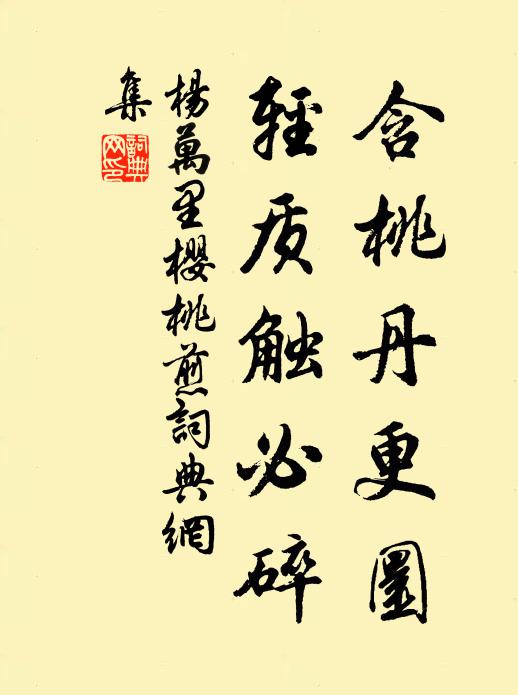 含桃丹更圜
輕质触必碎
楊萬里櫻桃煎詞典網
集
詞典
网印